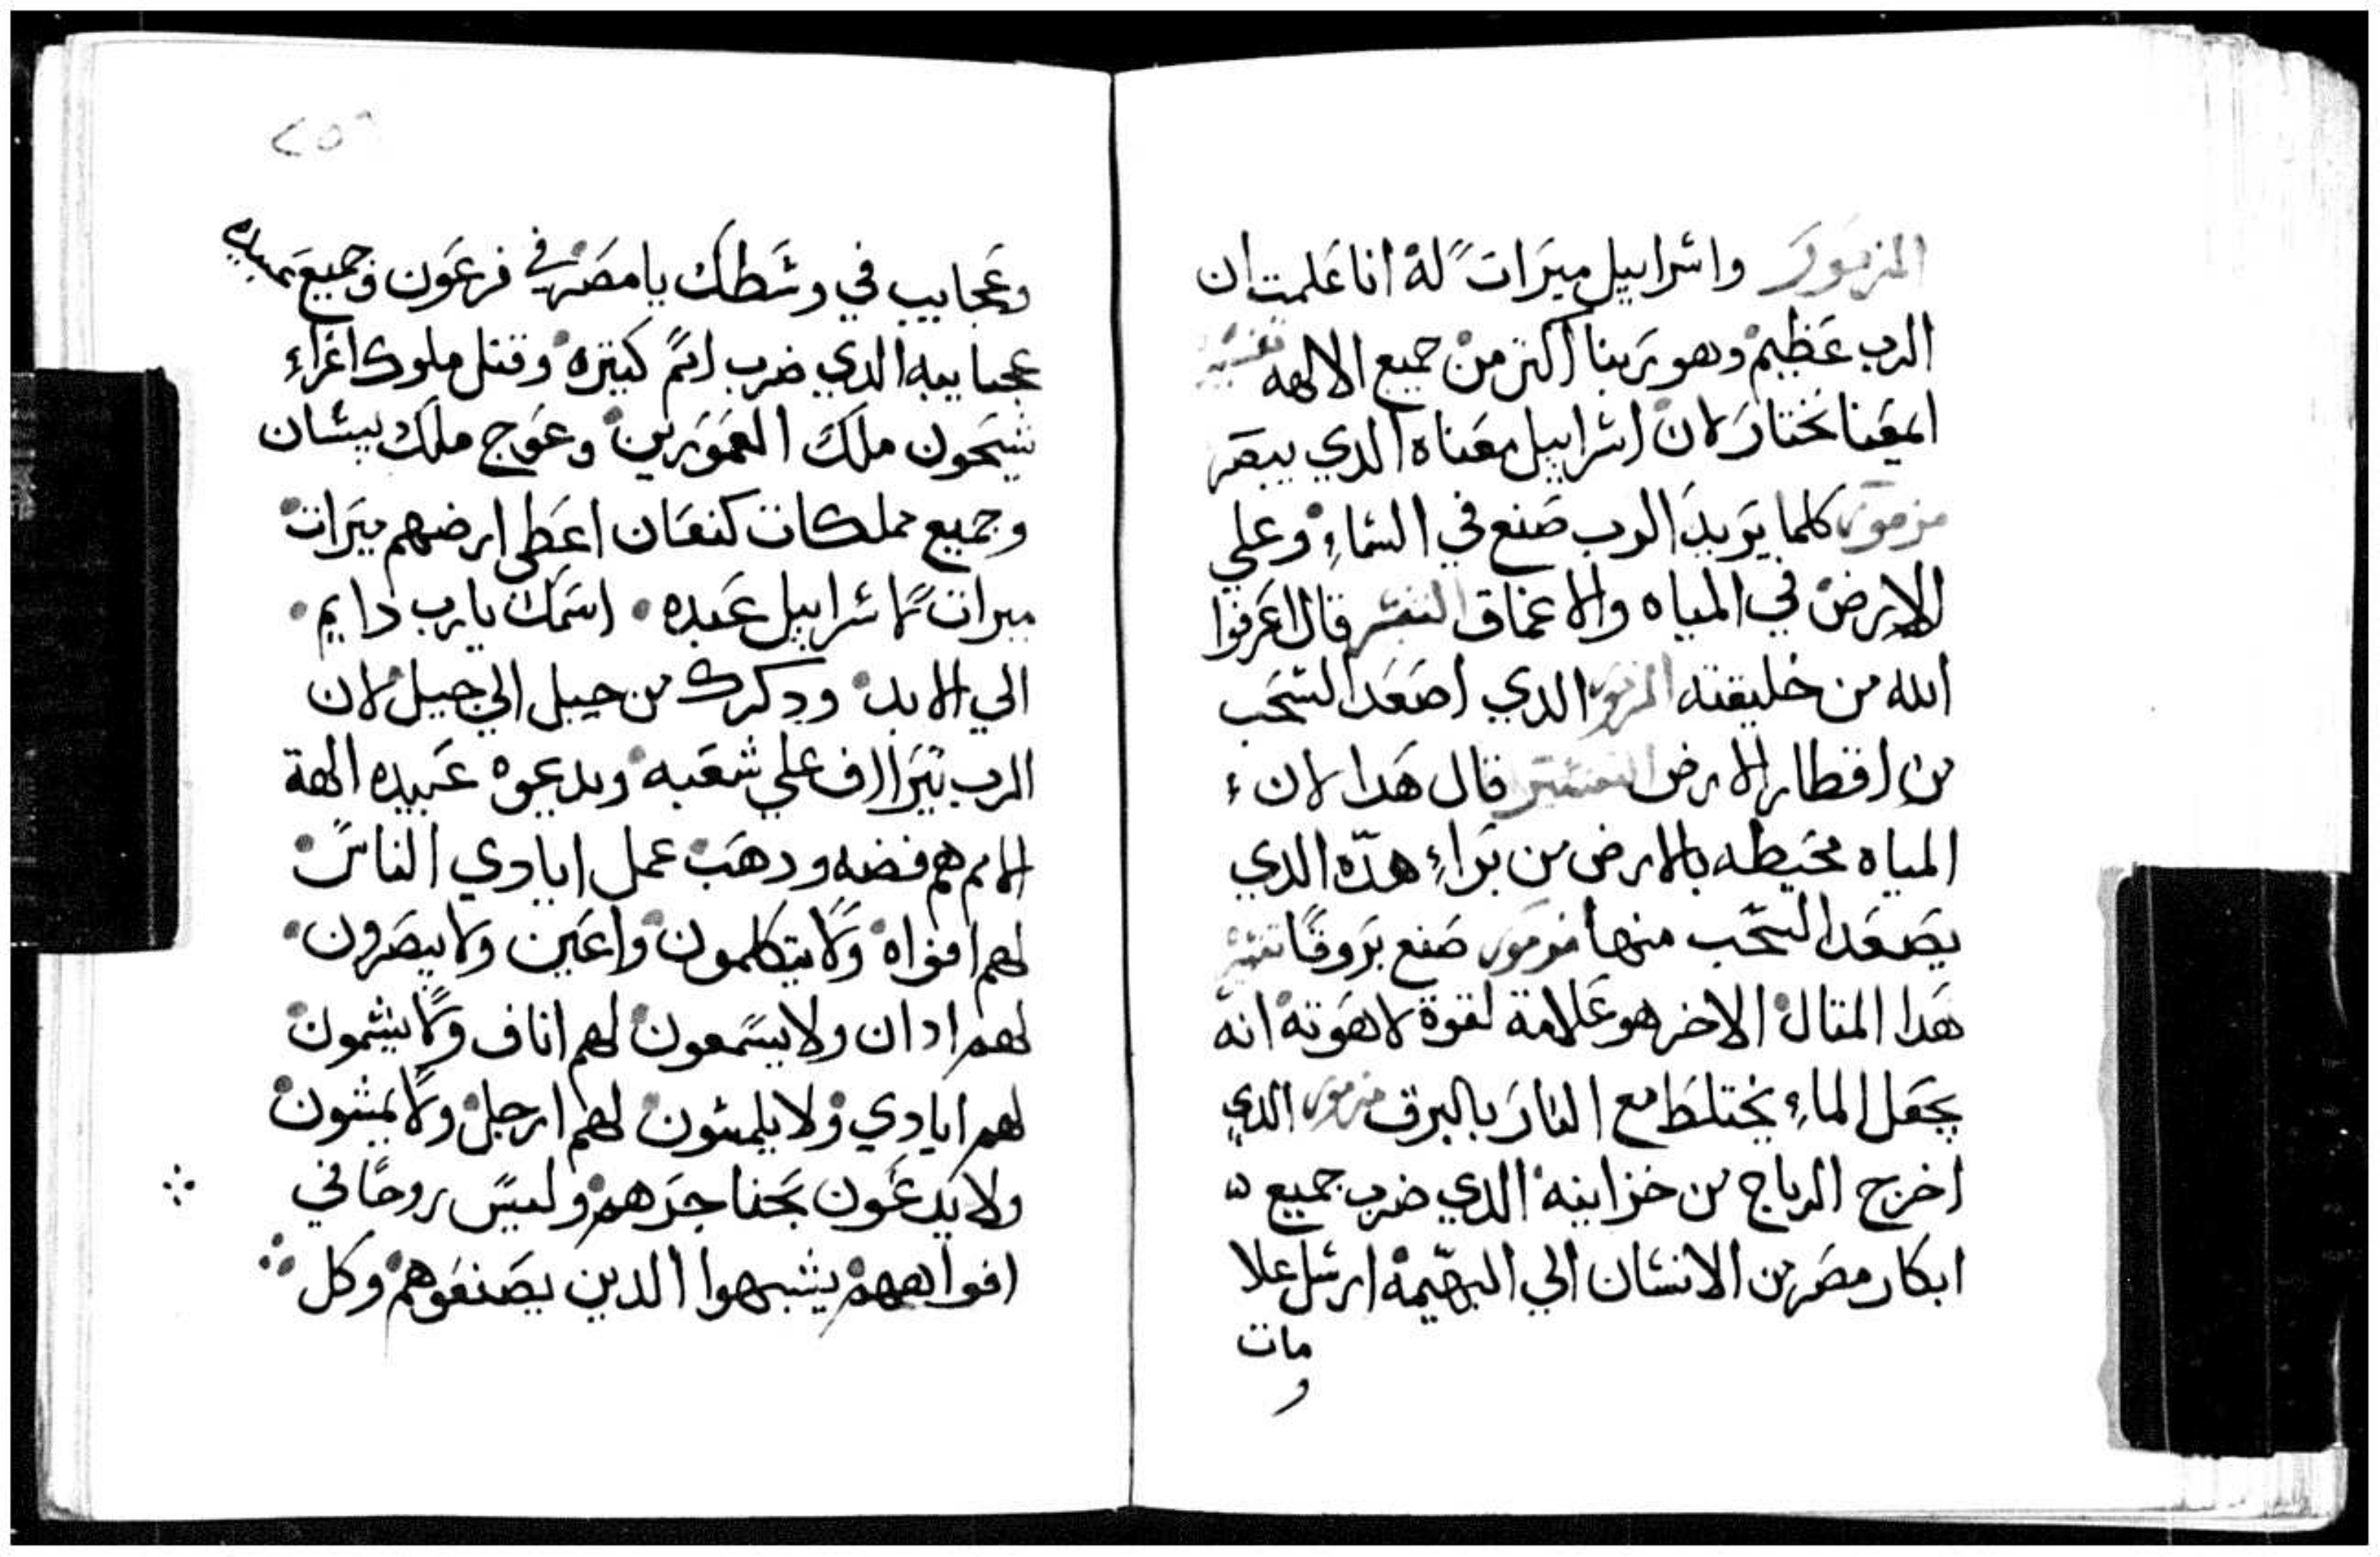 المزمور واسراييل ميرات له انا علمت ان
الرب عظيم وهو ربنا اكتر من جميع الالهه تفسير
المعنا نختار لان اسراييل معناه الدي يبصر
مزمور كلما يريد الرب صنع في السماء وعلي
الارض في المياه والاعماق التفسير قال اعرفوا
الله من خليقته المزمور الدي اصعد السحب
من اقطار الارض التفسير قال هدا لان
المياه محيطه بالارض من براء هده الدي
يصعد السحب منها مزمور صنع بروقا تفسير
هدا المتال الاخر هو علامة لقوة لاهوته انه
يجعل الماء يختلط مع النار بالبرق مزمور الدي
اخرج الرياح من خزاينه الدي ضرب جميع
ابكار مصر من الانسان الي البهيمة ارسل علا
مات
و
٢٥٦
وعجايب في وسطك يا مصر في فرعون وجميع عبيده
عجايبه الدي ضرب امم كتيره وقتل ملوك اعزاء
شيحون ملك العمورين وعوج ملك بيسان
وجميع مملكات كنعان اعطي ارضهم ميرات
ميرات لاسراييل عبده اسمك يا رب دايم
الي الابد ودكرك من جيل الي جيل لان
الرب يتراف علي شعبه ويدعوه عبيده الهة
الامم هم فضه ودهب عمل ايادي الناس
لهم افواه ولا يتكلمون واعين ولا يبصرون
لهم ادان ولا يسمعون لهم اناف ولا يشمون
لهم ايادي ولا يلمسون لهم ارجل ولا يمشون
ولا يدعون بحناجرهم وليس روحا في
افواههم يشبهوا الدين يصنعوهم وكل